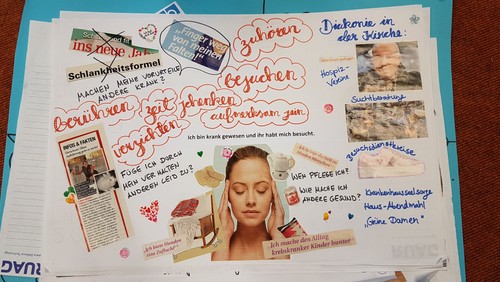 ins neue Jahr
Schlankheitsformel
"Finger weg
von meinen
Falten!"
zuhören
besuchen
MACHEN MEINE VORURTEILE
ANDERE KRANK?
berühren
zeit schenken
aufmerksam sein
verzichten
Ich bin krank gewesen und ihr habt mich besucht.
INFOS & FAKTEN
FÜGE ICH DURCH
MEIN VERHALTEN
ANDEREN LEID ZU?
WEN PFLEGE ICH?
WIE MACHE ICH
ANDERE GESUND?
Ich mache den Alltag
krebskranker Kinder bunter
Diakonie in
der Kirche:
Hospiz-
Vereine
Suchtberatung
Besuchsdienstkreise
Krankenhausseelsorge
Haus-Abendmahl
"Grüne Damen"
RUAG